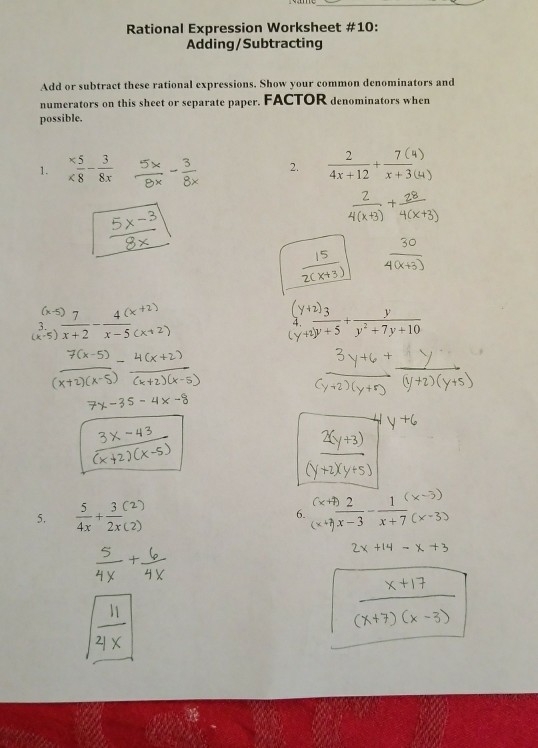 Name
Rational Expression Worksheet #10:
Adding/Subtracting
Add or subtract these rational expressions. Show your common denominators and
numerators on this sheet or separate paper. FACTOR denominators when
possible.
1. x5/x8 - 3/8x 5x/8x - 3/8x
5x-3/8x
2. 2/4x+12 + 7(4)/x+3(4)
2/4(x+3) + 28/4(x+3)
30/4(x+3)
15/2(x+3)
3. (x-5)7/(x-5)x+2 - 4(x+2)/x-5(x+2)
7(x-5)/(x+2)(x-5) - 4(x+2)/(x+2)(x-5)
7x-35-4x-8
3x-43/(x+2)(x-5)
4. (y+2)3/(y+2)y+5 + y/y²+7y+10
3y+6/(y+2)(y+5) + y/(y+2)(y+5)
4y+6
2(y+3)/(y+2)(y+5)
5. 5/4x + 3(2)/2x(2)
5/4x + 6/4x
11/4x
6. (x+7)2/(x+7)x-3 - 1(x-3)/x+7(x-3)
2x+14-x+3
x+17/(x+7)(x-3)